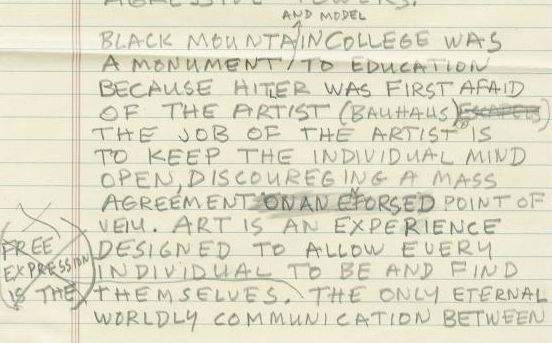 AGRESSIVE POWERS.
AND MODEL
BLACK MOUNTAIN COLLEGE WAS
A MONUMENT / TO EDUCATION
BECAUSE HITER WAS FIRST AFAID
OF THE ARTIST (BAUHAUS)
THE JOB OF THE ARTIST IS
TO KEEP THE INDIVIDUAL MIND
OPEN, DISCOUREGING A MASS
AGREEMENT ON AN EFORSED POINT OF
VEIW. ART IS AN EXPERIENCE
DESIGNED TO ALLOW EVERY
INDIVIDUAL TO BE AND FIND
THEMSELVES. THE ONLY ETERNAL
WORLDLY COMMUNICATION BETWEEN
FREE
EXPRESSION
IS THE